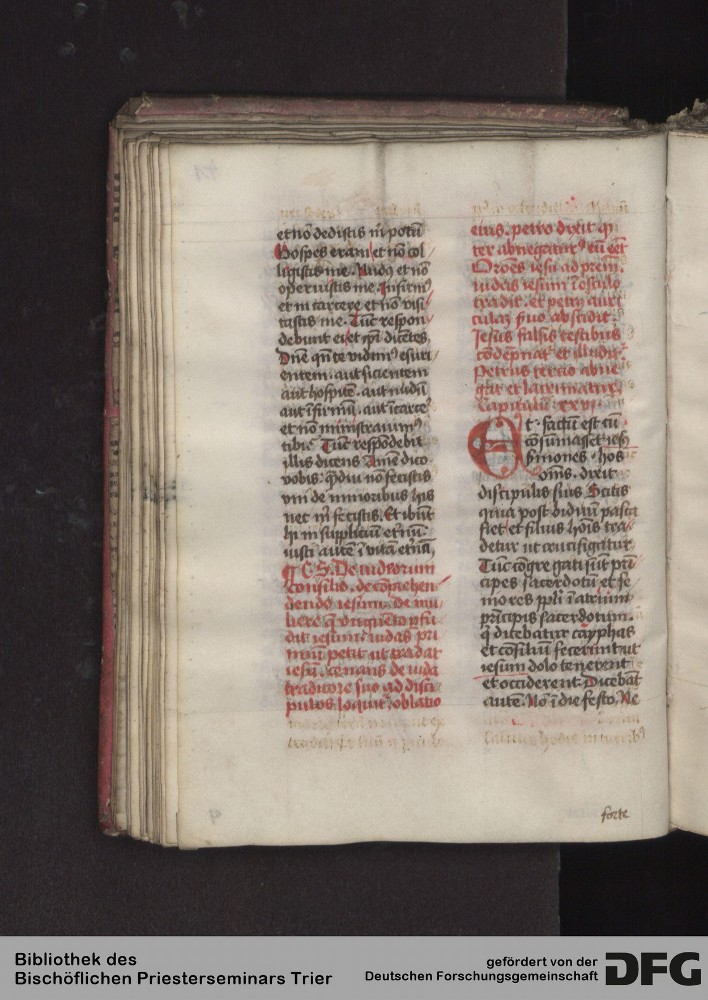 et nō dedistis m̄ potū
Hospes eram et nō col
ligistis me. Nudꝰ et nō
operuistis me. Infirmꝰ
et in carcere et nō visi
tastis me. Tūc respon
debunt ei et ip̄i dicētes
Dn̄e qn̄ te vidimꝰ esuri
entem. aut sicientem
aut hospitē. aut nudū
aut īfirmū. aut ī carcē
et nō ministrauimꝰ
tibi. Tūc respōdebit
illis dicens Amē dico
vobis. qͣdiu nō fecistis
vni de minoribus his
nec m̄ fecistis. Et ibūt
hi in suppliciū et̄nū.
iusti autē ī vitā et̄nā
¶ C. S. De iudeorum
consilio. de cōprehen
dendo iesum. De mu
liere q̄ vnguēto ꝑfu
dit iesum. iudas pri
mum petit ut tradat
iesū. cenans de iuda
traditore suo ad disci
pulos loquit̉. oblatio
eius. petro dixit qͥ
ter abnegaturꝰ eū eēt
Orōes iesu ad prēm.
iudas iesum ī osculo
tradit. et petrꝰ auri
culaꝫ suo abscidit.
Iesus falsis testibus
cōdēpnat̉ et illudit̉
Petrus tercio abne
gat et lacrimatur.
Capitulū. xxvi.
Et. factū est cū
cōsummasset iesꝰ
sermones. hos
om̄s. dixit
discipulis suis Scitis
quia post biduū pasca
fiet et filius hoīs tra
detur ut crucifigatur
Tūc cōgregati sūt prī
cipes sacerdotū et se
niores ppl̄i ī atrium
prīcipis sacerdotum.
q̇ dicebatur cayphas
et cōsiliū fecerūt ut
iesum dolo tenerent
et occiderent. Dicebāt
autē. Nō ī die festo. Ne
forte
Bibliothek des
Bischöflichen Priesterseminars Trier
gefördert von der
Deutschen Forschungsgemeinschaft
DFG